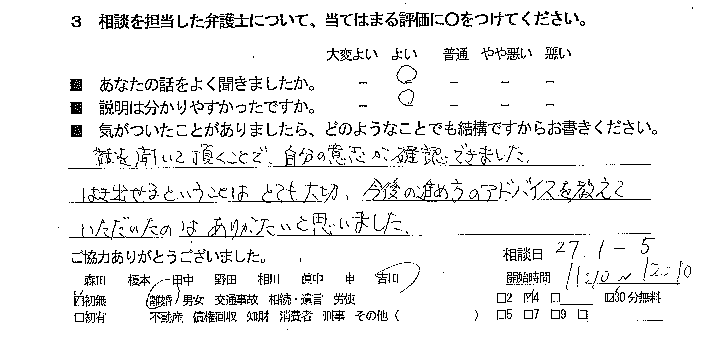 3 相談を担当した弁護士について、当てはまる評価に○をつけてください。
大変よい よい 普通 やや悪い 悪い
あなたの話をよく聞きましたか。 - ○ - - -
説明は分かりやすかったですか。 - ○ - - -
気がついたことがありましたら、どのようなことでも結構ですからお書きください。
話を聞いて頂くことで、自分の意思が確認できました。
はき出せるということは とても大切、今後の進め方のアドバイスを教えて
いただいたのは ありがたいと思いました。
ご協力ありがとうございました。
相談日 27.1-5
森田 榎本 田中 野田 相川 申 吉川
開始時間 11:10~12:10
☑初無 離婚 男女 交通事故 相続・遺言 労使 □2 ☑4 □ ☑30分無料
□初有 不動産 債権回収 知財 消費者 刑事 その他( ) □5 □7 □9 □